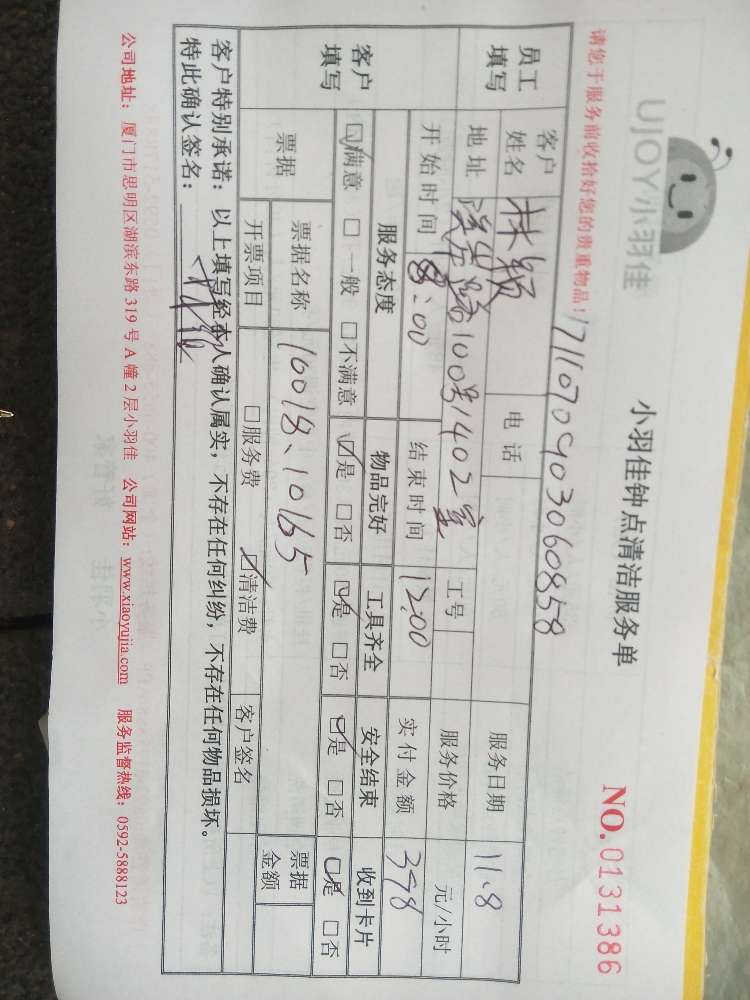 UJOY小羽佳
小羽佳钟点清洁服务单
NO.0131386
请您于服务前收拾好您的贵重物品!
1711070903060858
员工填写
客户姓名 林颖 电话 服务日期 11.8
地址 溪岸路100号1402室 工号 服务价格 元/小时
开始时间 8:00 结束时间 12:00 实付金额 398
客户填写
服务态度 物品完好 工具齐全 安全结束 收到卡片
☑满意 □一般 □不满意 ☑是 □否 ☑是 □否 ☑是 □否 ☑是 □否
票据 票据名称 10018、10165 票据金额
开票项目 □服务费 ☑清洁费 客户签名
客户特别承诺:以上填写经本人确认属实,不存在任何纠纷,不存在任何物品损坏。
特此确认签名:
公司地址:厦门市思明区湖滨东路 319 号 A 幢 2 层小羽佳 公司网站:www.xiaoyujia.com 服务监督热线:0592-5888123